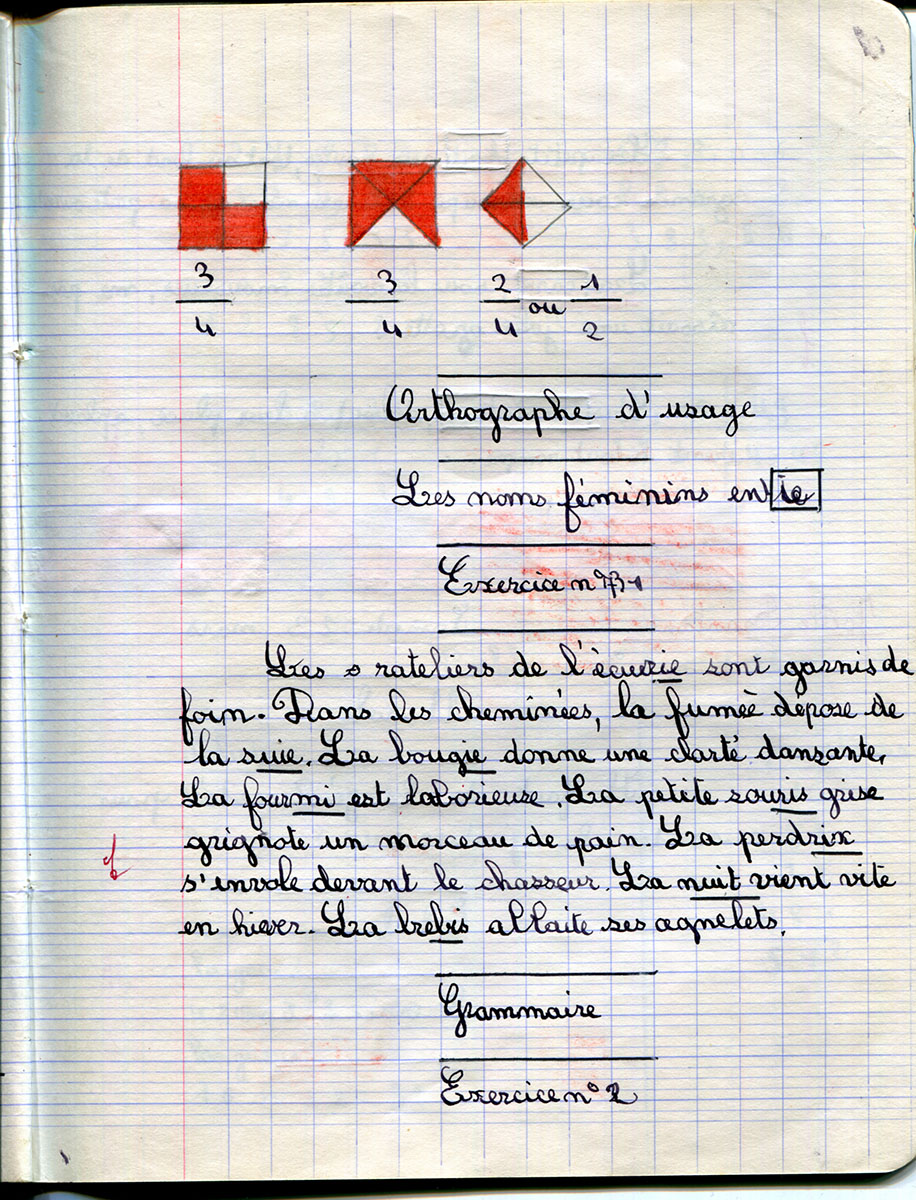 3/4 3/4 2/4 ou 1/2
Orthographe d'usage
Les noms féminins en ie
Exercice n°
Les rateliers de l'écurie sont garnis de
foin. Dans les cheminées, la fumèe dépose de
la suie. La bougie donne une clarté dansante.
La fourmi est laborieuse. La petite souris grise
grignote un morceau de pain. La perdrix
s'envole devant le chasseur. La nuit vient vite
en hiever. La brebis allaite ses agnelets.
Grammaire
Exercice n° 2